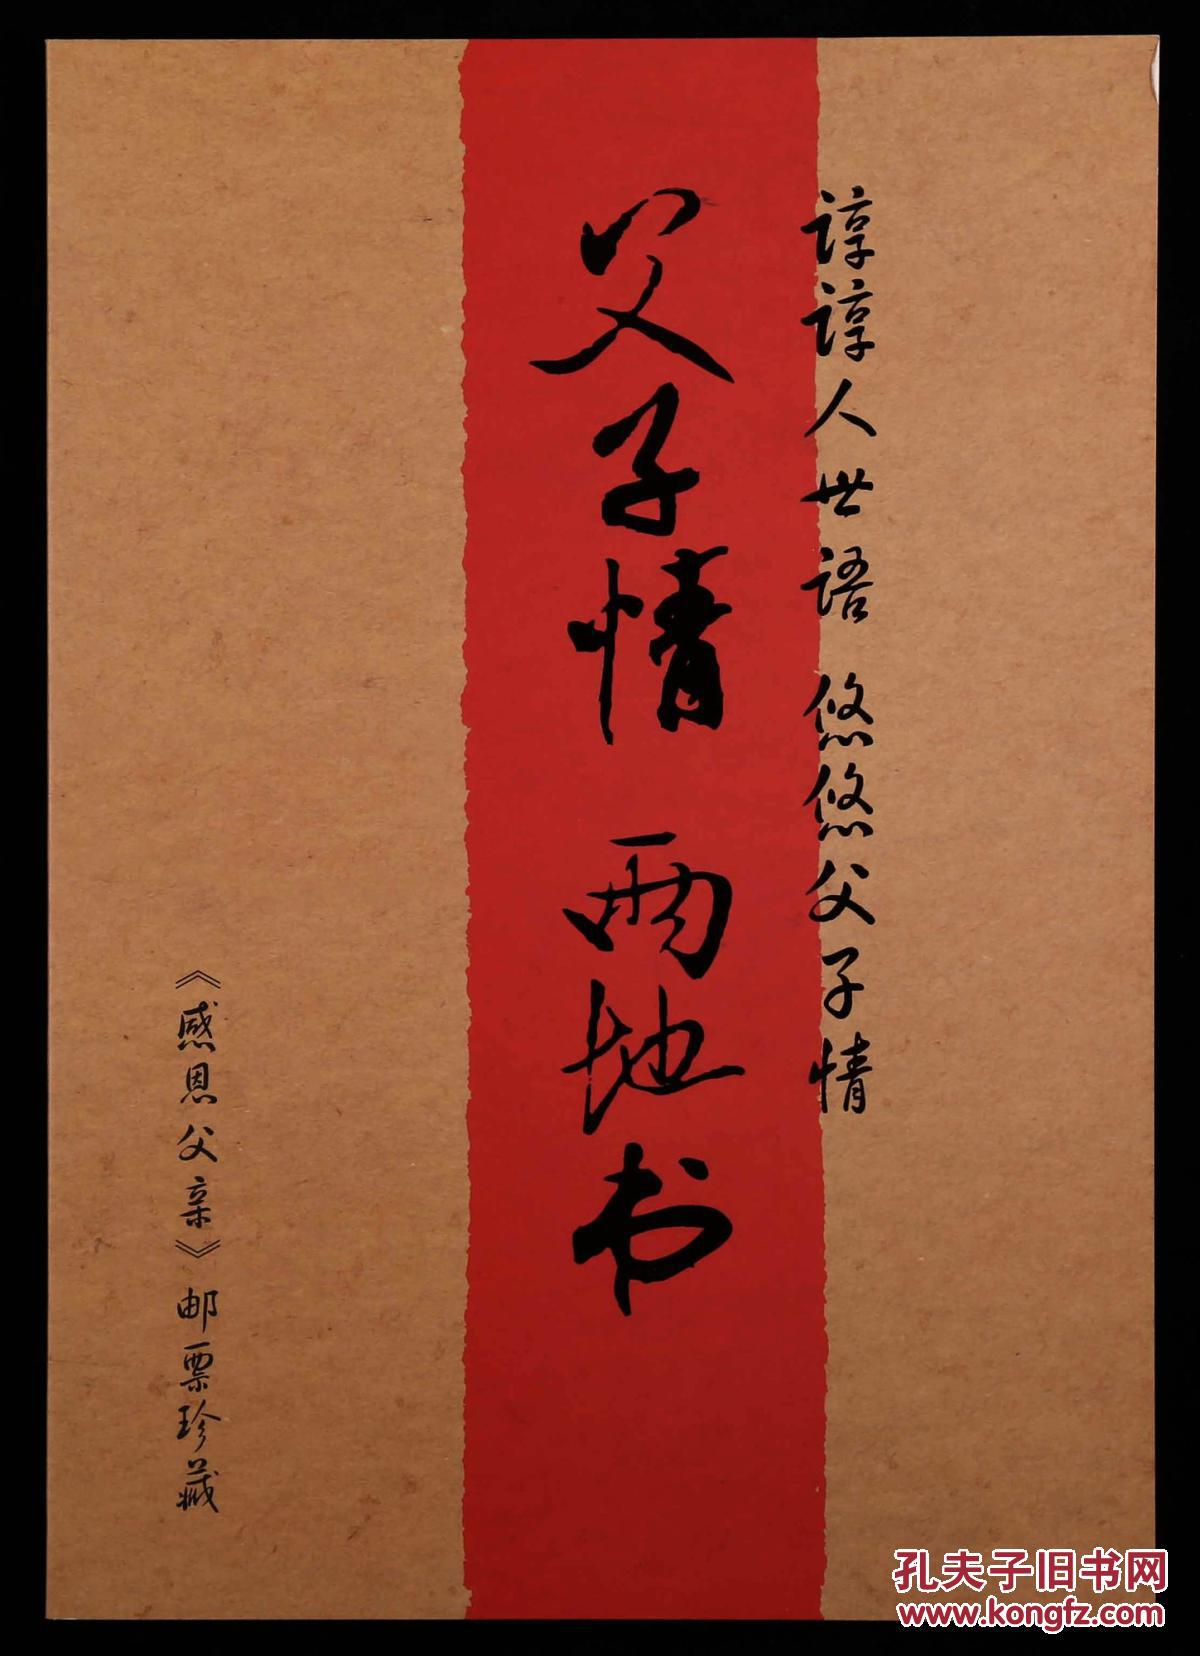 谆谆人世语 悠悠父子情
父子情 两地书
《感恩父亲》邮票珍藏
孔夫子旧书网
www.kongfz.com